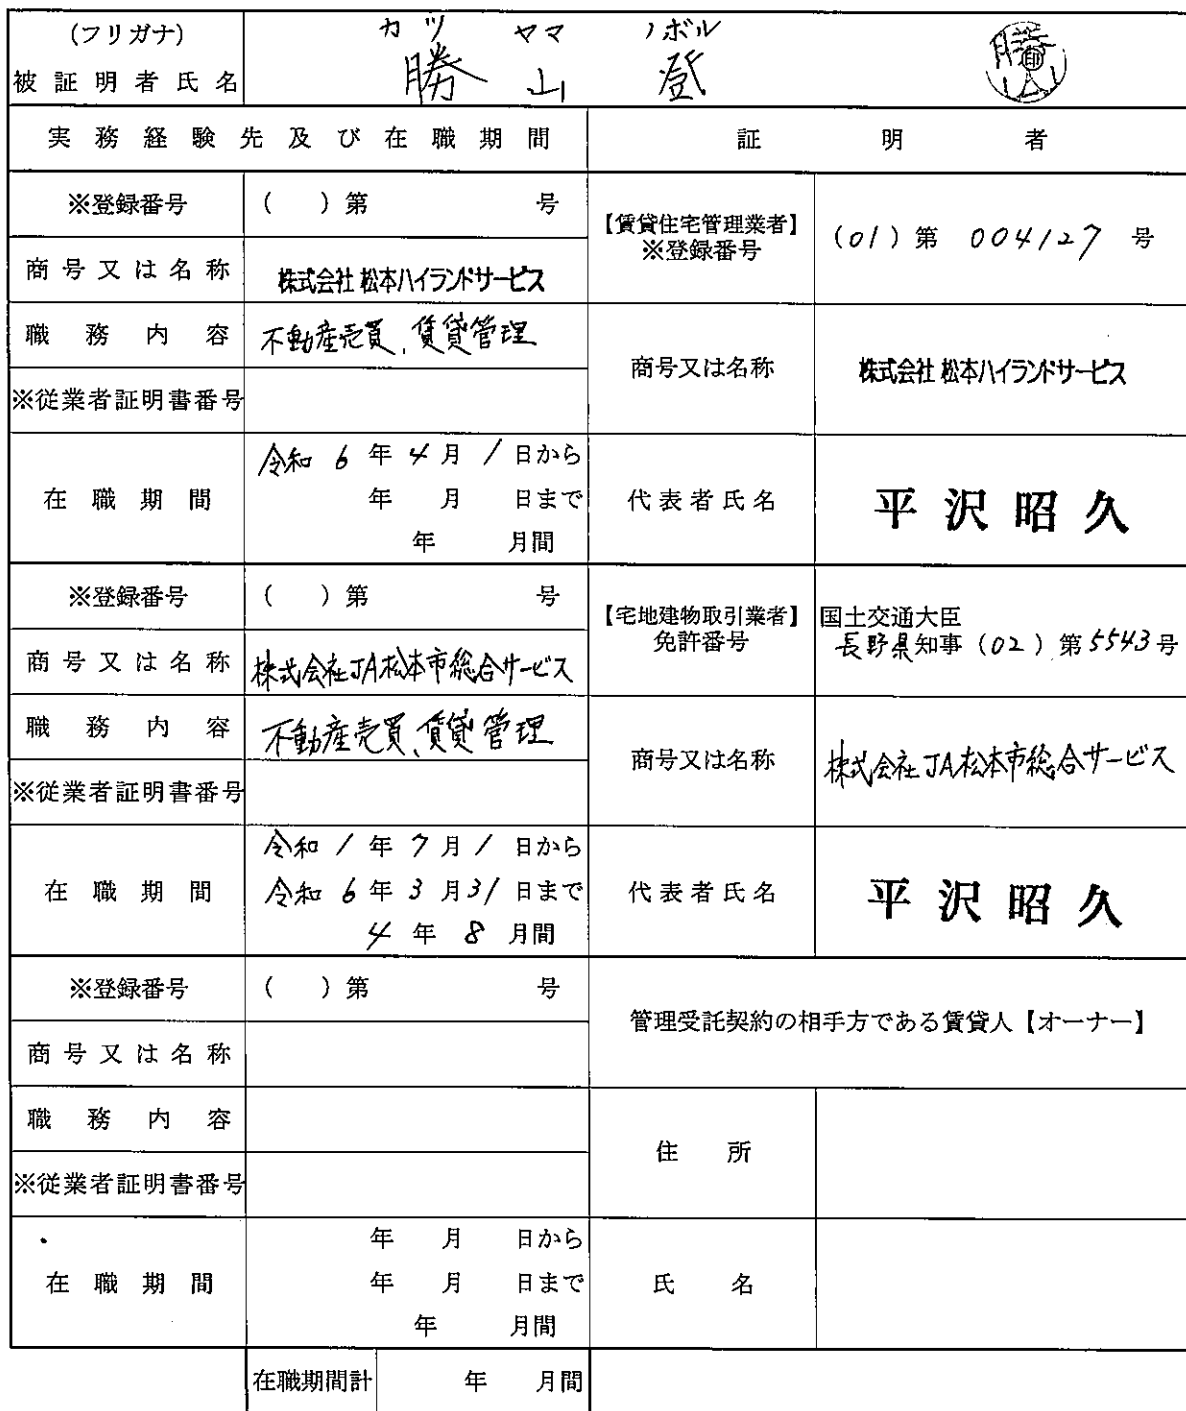 (フリガナ) カツ ヤマ ノボル
被証明者氏名 勝山 登 勝山 印
実務経験先及び在職期間 証明者
※登録番号 ( )第 号
【賃貸住宅管理業者】
※登録番号 (01)第 004127 号
商号又は名称 株式会社 松本ハイランドサービス
職務内容 不動産売買、賃貸管理
商号又は名称 株式会社 松本ハイランドサービス
※従業者証明書番号
令和 6 年 4 月 1 日から
在職期間 年 月 日まで
年 月間
代表者氏名 平沢昭久
※登録番号 ( )第 号
【宅地建物取引業者】
免許番号
国土交通大臣
長野県知事 (02)第5543号
商号又は名称 株式会社JA松本市総合サービス
職務内容 不動産売買、賃貸管理
商号又は名称 株式会社JA松本市総合サービス
※従業者証明書番号
令和 1 年 7 月 1 日から
在職期間 令和 6 年 3 月 31 日まで
4 年 8 月間
代表者氏名 平沢昭久
※登録番号 ( )第 号
管理受託契約の相手方である賃貸人【オーナー】
商号又は名称
職務内容
住所
※従業者証明書番号
年 月 日から
在職期間 年 月 日まで
年 月間
氏名
在職期間計 年 月間